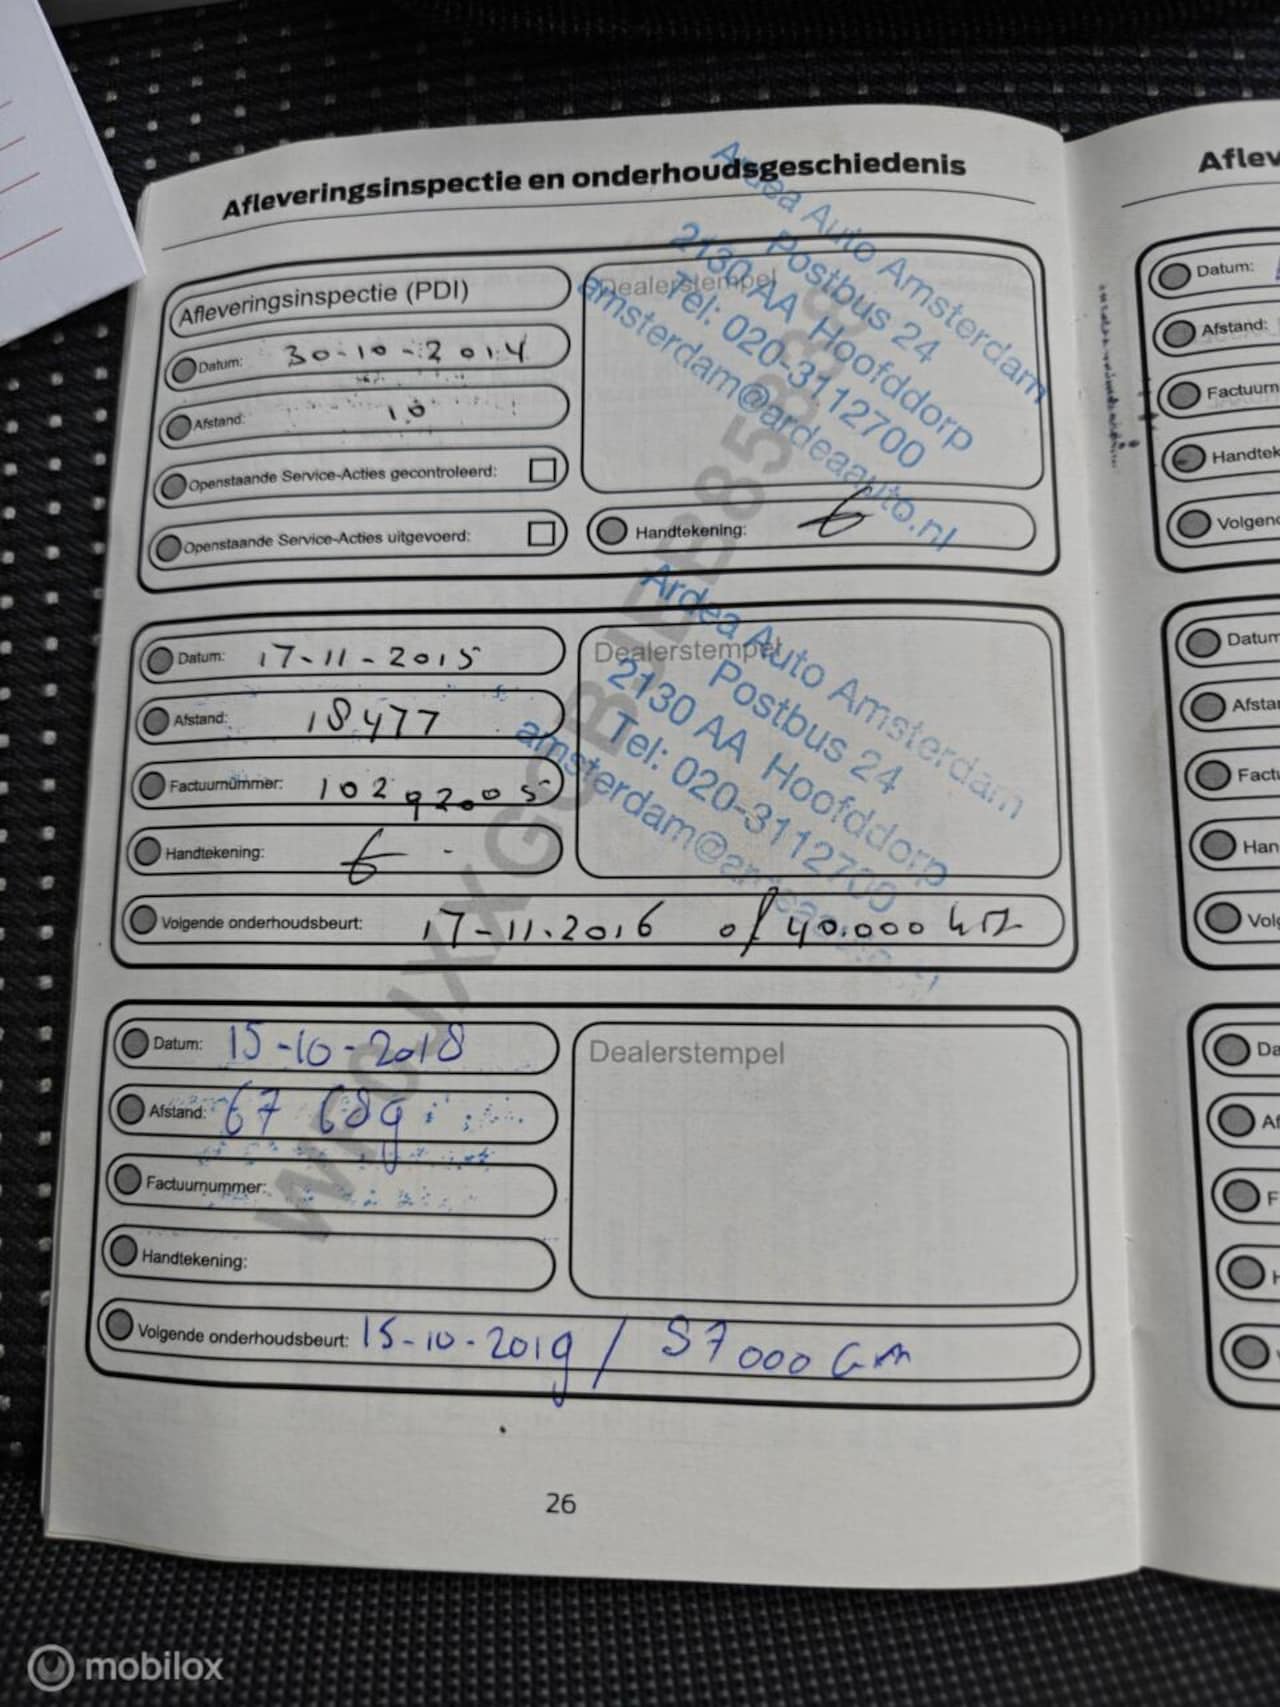 Afleveringsinspectie en onderhoudsgeschiedenis
Afleveringsinspectie (PDI)
Datum: 30-10-2014
Afstand: 10
Openstaande Service-Acties gecontroleerd:
Openstaande Service-Acties uitgevoerd:
Dealerstempel
Ardea Auto Amsterdam
Postbus 24
2130 AA Hoofddorp
Tel: 020-3112700
amsterdam@ardeaauto.nl
Handtekening:
Datum: 17-11-2015
Afstand: 18477
Factuurnummer: 10292005
Handtekening:
Dealerstempel
Ardea Auto Amsterdam
Postbus 24
2130 AA Hoofddorp
Tel: 020-3112700
Volgende onderhoudsbeurt: 17-11-2016 of 40.000
Datum: 15-10-2018
Afstand: 67 689
Factuurnummer:
Handtekening:
Dealerstempel
Volgende onderhoudsbeurt: 15-10-2019 /
26
Aflev
Datum:
Afstand:
Factuurn
Handtek
Volgend
Datum
Afsta
Factu
Han
Volg
Da
Af
F
H
mobilox